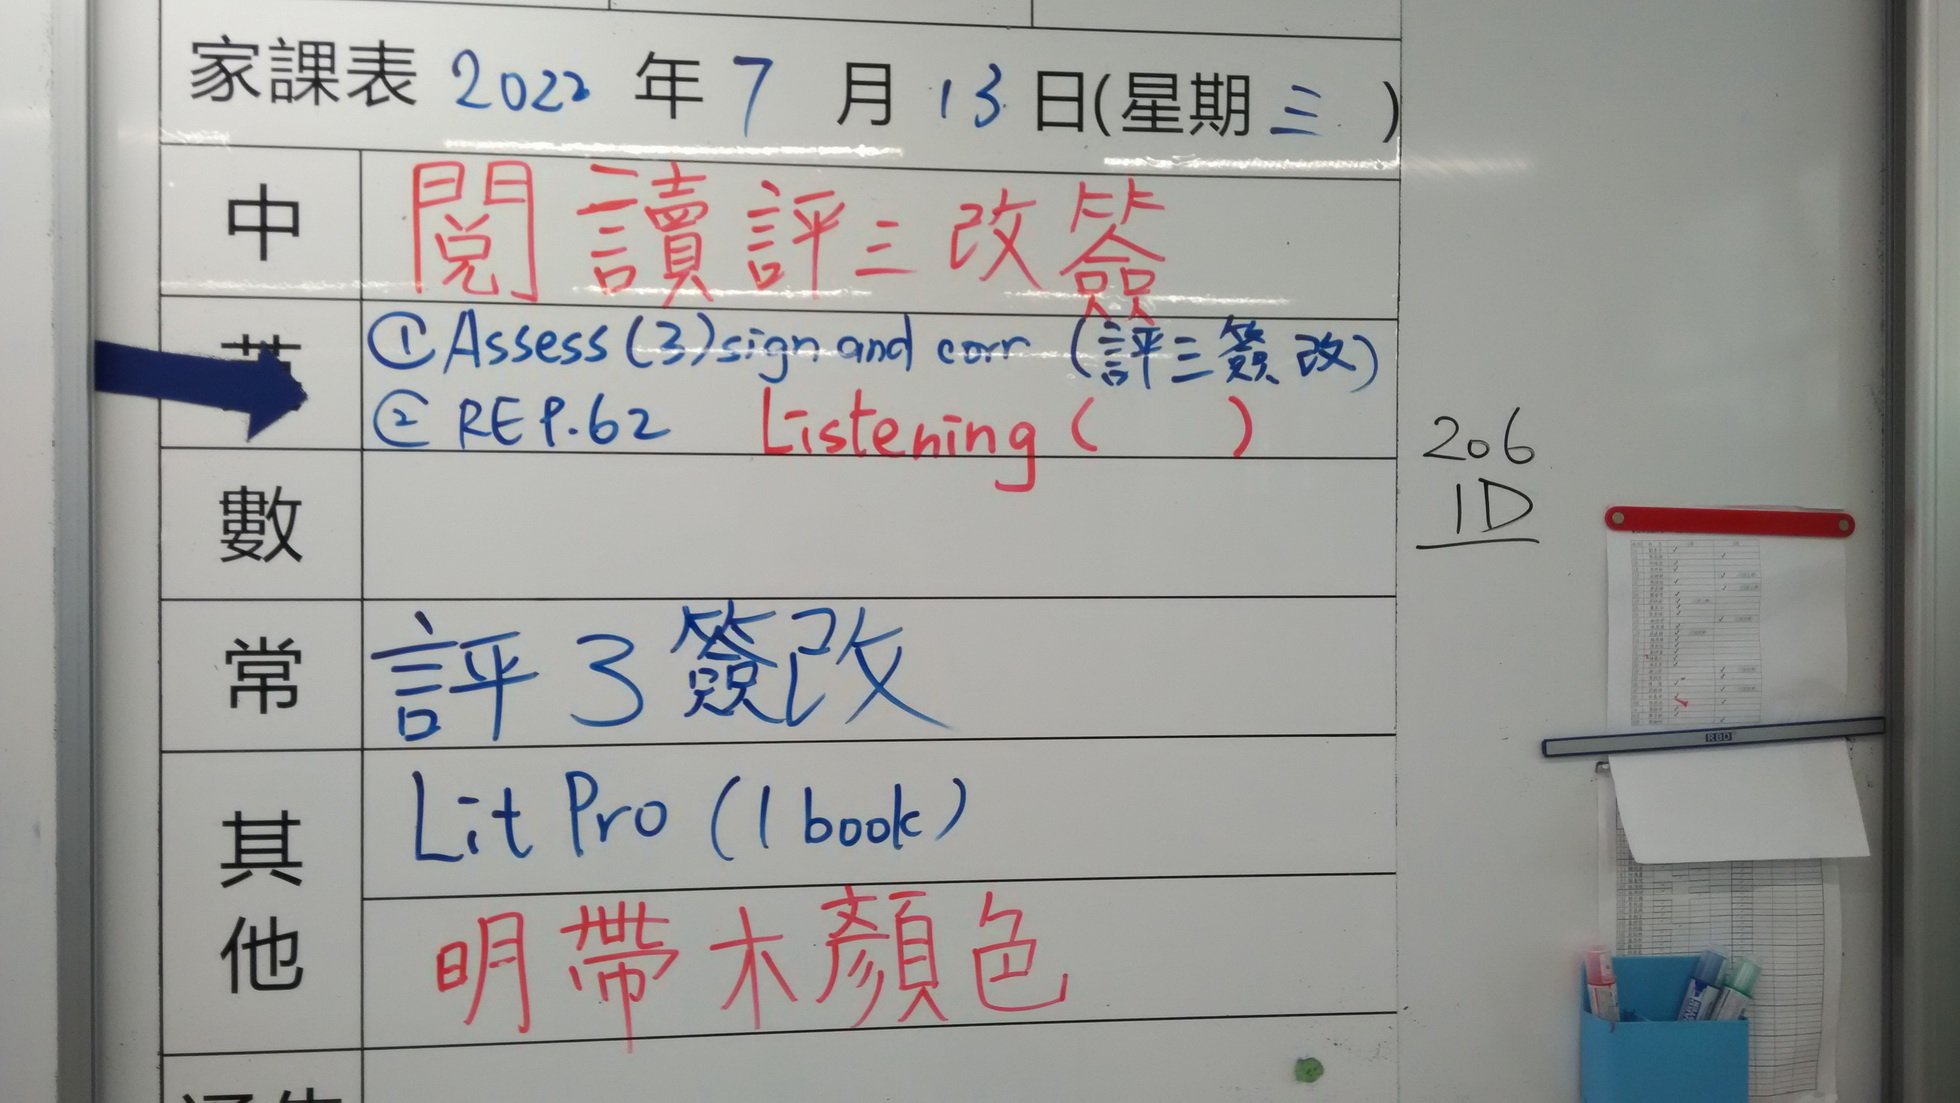 家課表 2022 年 7 月 13 日(星期三 )
中 閱讀評三改簽
英 ① Assess (3) sign and corr (評三簽改)
② RE P.62 Listening ( )
數
常 評3簽改
其他 Lit Pro (1 book)
明帶木顏色
206
1D
RBD